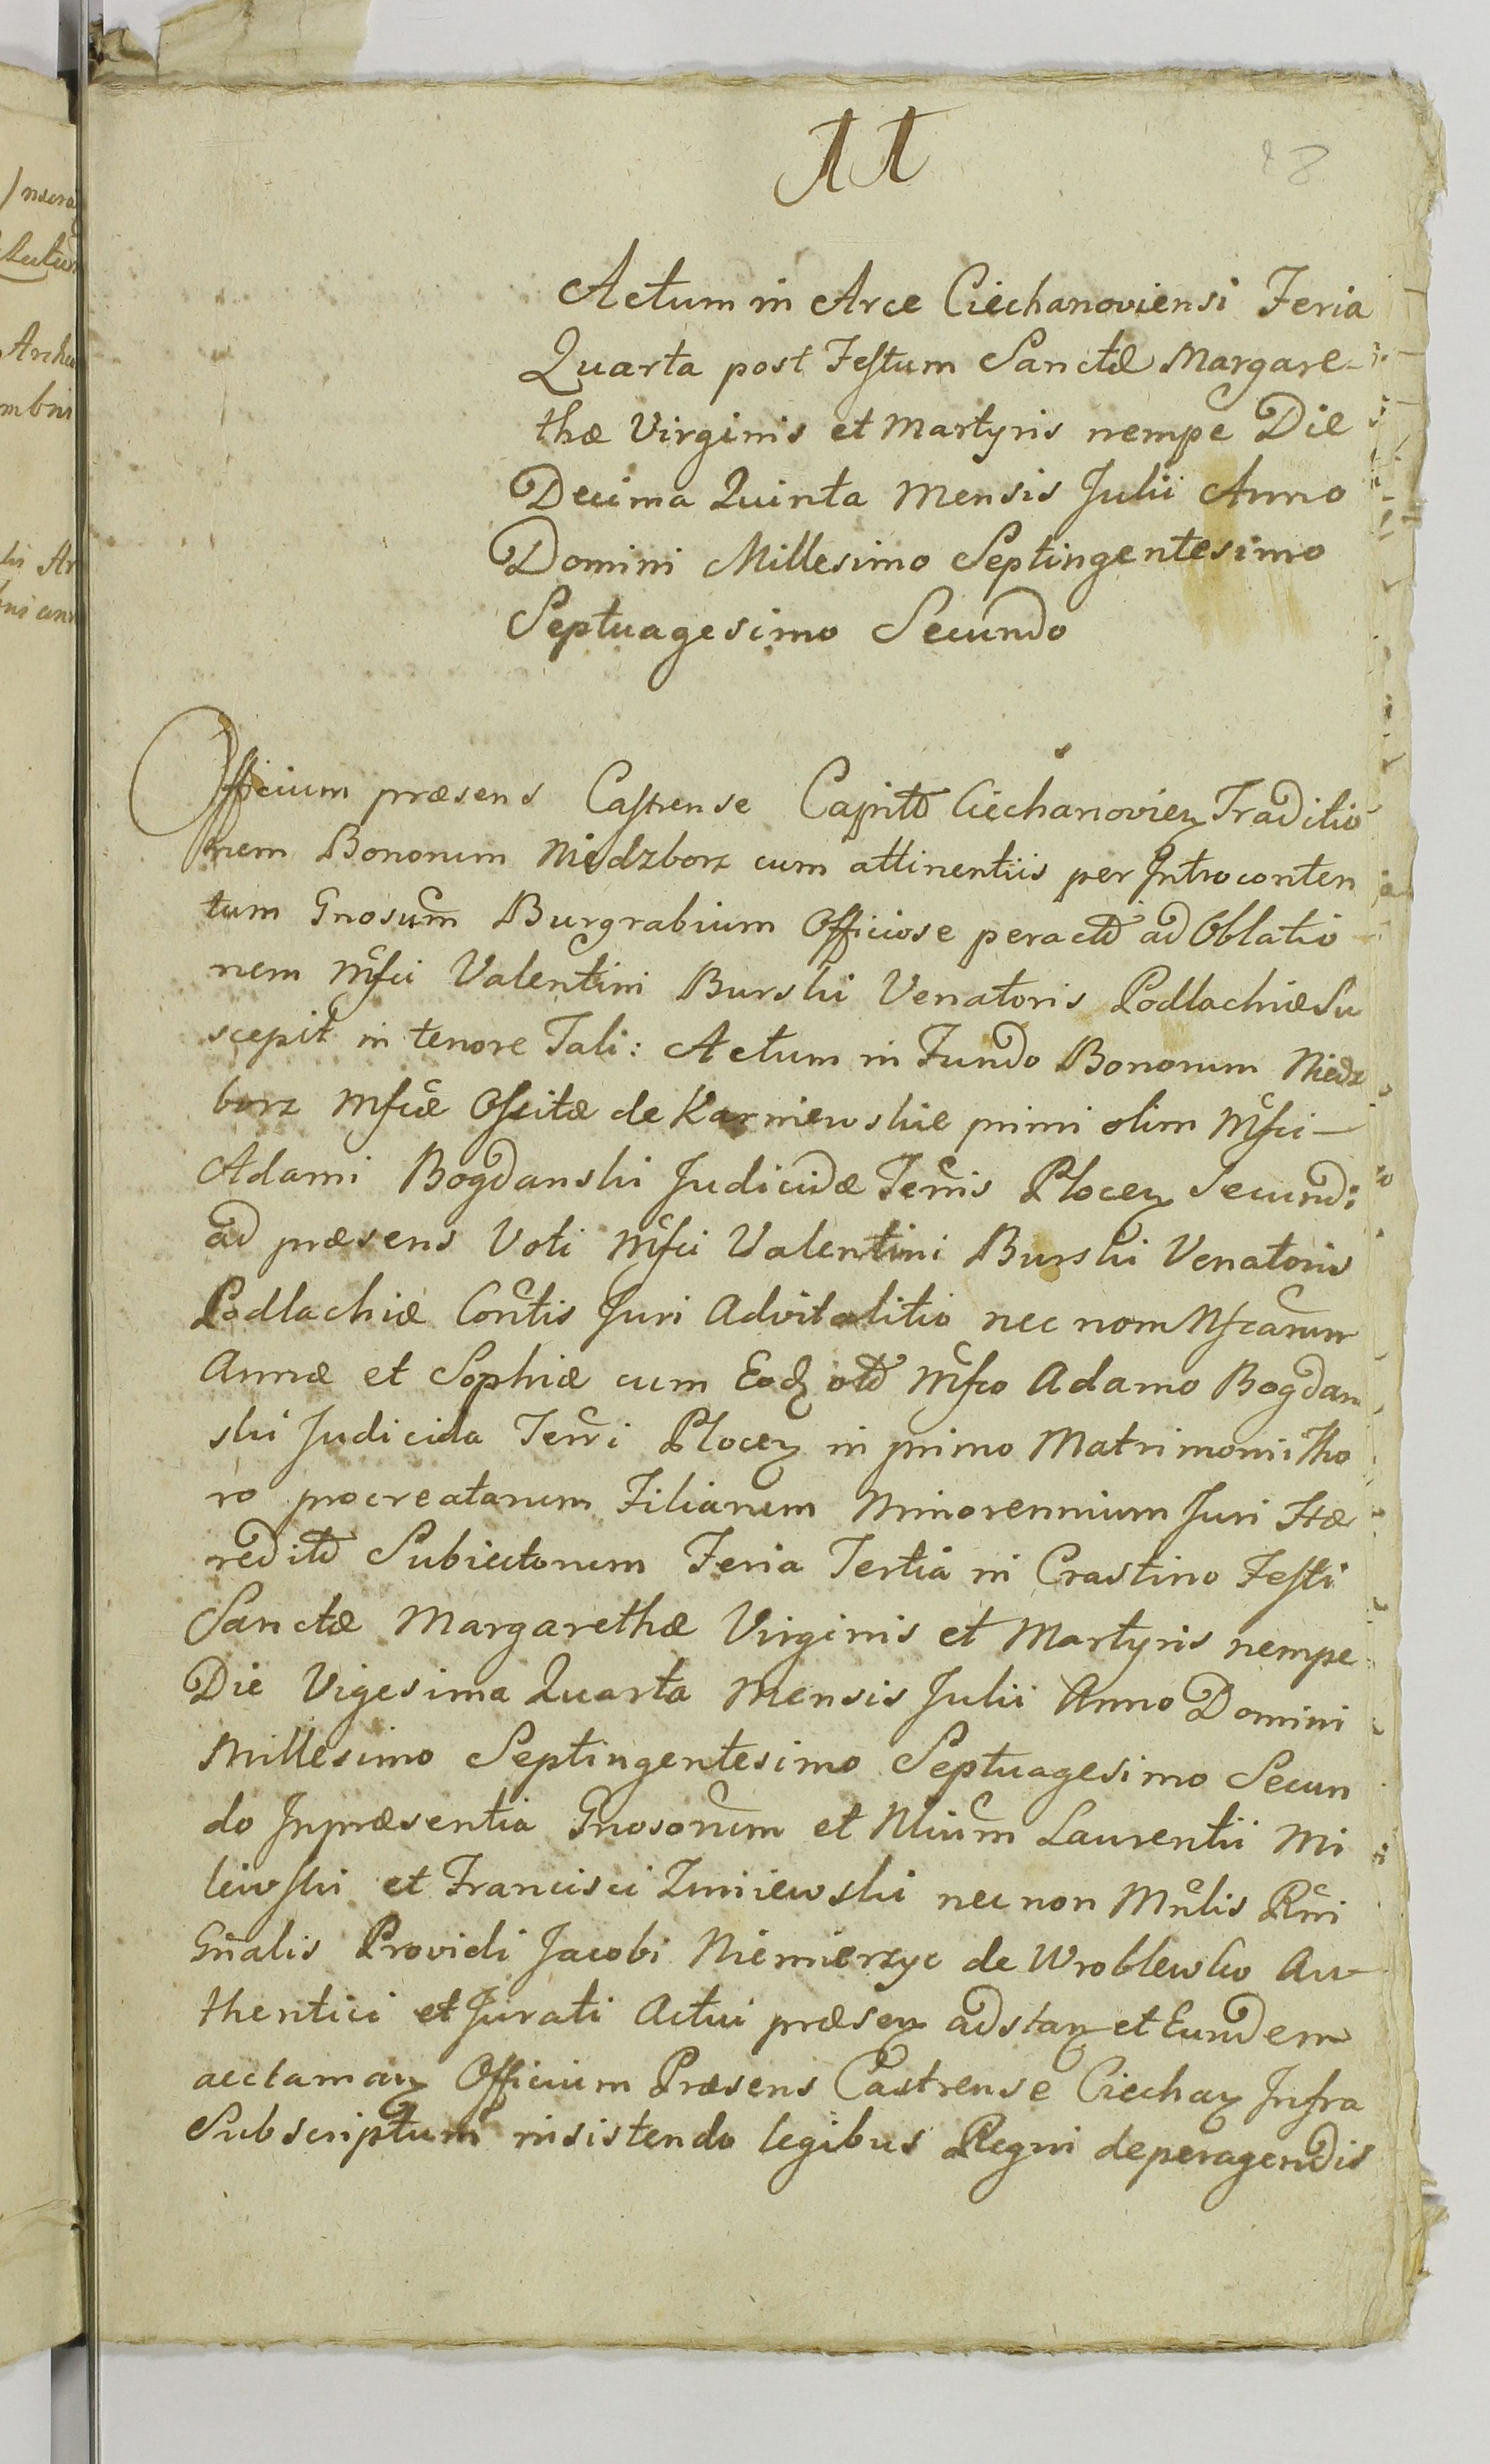 28
Actum in Arce Ciechanoviensi Feria
Quarta post Festum Sanctæ Margare-
thæ Virginis et Martyris nempe Die
Decima Quinta Mensis Julii Anno
Domini Millesimo Septingentesimo
Septuagesimo Secundo
Officium præsens Castrense Capitt Ciechanovien Traditio
nem Bonorum Niedzborz cum attinentiis per Introconten
tum Gnosum Burgrabium Officiose peractt ad Oblatio
nem Mfci Valentini Burski Venatoris Podlachiæ Su
scepit in tenore Tali: Actum in Fundo Bonorum Niedz
borz Mfcæ Ossitæ de Karniewskie primi olim Mfci
Adami Bogdanski Judicidæ Terris Plocen Secundi
ad præsens Voti Mfci Valentini Burski Venatoris
Podlachiæ Contis Juri Advitalitio nec non Mfcarum
Annæ et Sophiæ cum Eod ott Mfco Adamo Bogdan
ski Judicida Terri Plocen in primo Matrimonii Tho
ro procreatarum Filiarum Minorennium Juri Hæ
reditt Subiectorum Feria Tertia in Crastino Festi
Sanctæ Margarethæ Virginis et Martyris nempe
Die Vigesima Quarta Mensis Julii Anno Domini
Millesimo Septingentesimo Septuagesimo Secun
do Inpræsentia Gnosorum et Nlium Laurentii Mi
lewski et Francisci Zmiewski nec non Mnlis Rni
Gnalis Providi Jacobi Niemierzyc de Wroblewko Au
thentici et Jurati Actui præsen adstan et Eundem
acclaman Officium Præsens Castrense Ciechan Infra
Subscriptum insistendo legibus Regni de peragendis